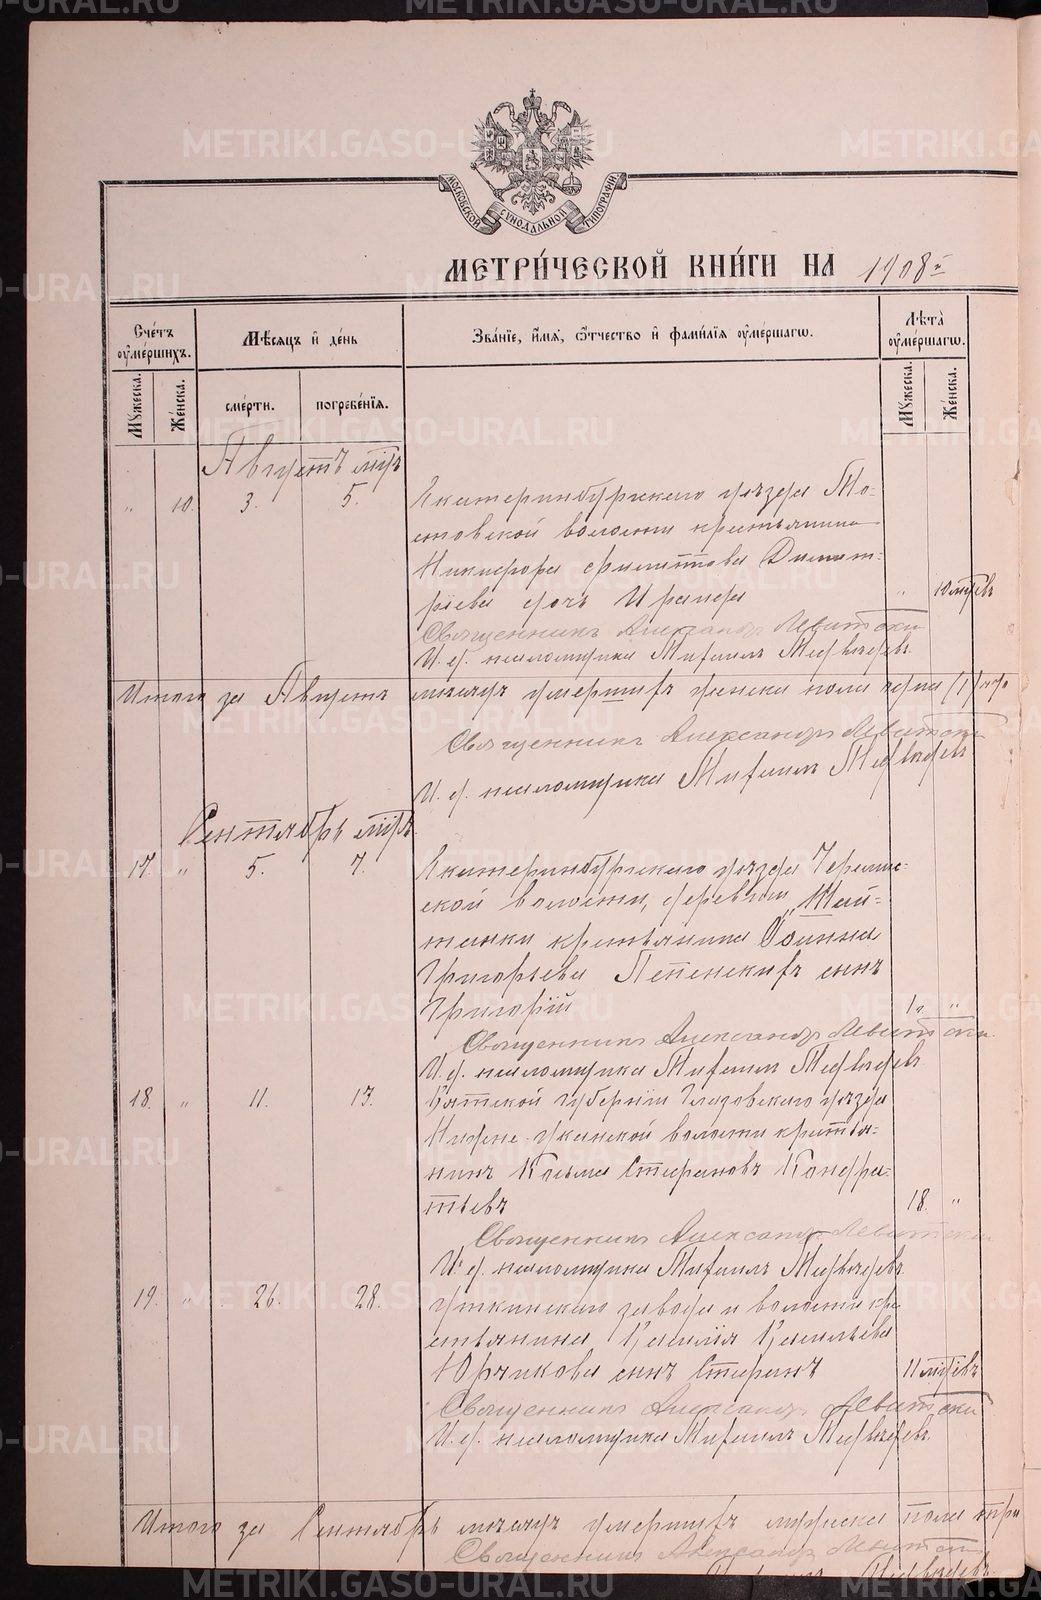 METRIKI.GASO-URAL.RU
МОСКОВСКОЙ СѴНОДАЛЬНОЙ ТИПОГРАФІИ
МЕТРИ́ЧЕСКОЙ КНИ́ГИ НА 1908й
Сче́тъ ᲂу҆ме́ршихъ.
Мѣ́сяцъ и҆ де́нь
Зва́нїе, и҆́мѧ, ѻ҆́тчество и҆ фами́лїѧ ᲂу҆ме́ршагѡ.
Лѣ́та ᲂу҆ме́ршагѡ.
Мꙋ́жеска.
Же́нска.
сме́рти.
погребе́нїѧ.
Мꙋ́жеска.
Же́нска.
Августъ мцъ
„ 10. 3. 5. Екатеринбургскаго уѣзда
волости крестьянина
Никифора Филиппова Димит-
ріева дочь 10 мцевъ
Священникъ Александръ Левитскій
И. д. псаломщика Михаилъ Медвѣдевъ
Итого за Августъ мѣсяцъ умершихъ женска пола одна (1)
Священникъ Александръ Левитскій
И. д. псаломщика Михаилъ Медвѣдевъ
Сентябрь мцъ
17. „ 5. 7. Екатеринбургскаго уѣзда Черемис-
ской волости, деревни Шай-
танки крестьянина
Григорьева сынъ
Григорій 1 г. „
Священникъ Александръ Левитскій
И. д. псаломщика Михаилъ Медвѣдевъ
18. „ 11. 13. Вятской губерніи Глазовскаго уѣзда
Нижне-Уканской волости крестья-
нинъ Косьма Стефановъ Кондра-
тьевъ 18. „
Священникъ Александръ Левитскій
И. д. псаломщика Михаилъ Медвѣдевъ
19. „ 26. 28. Уткинскаго завода и волости кре
стьянина Василія Васильева
Юрчикова сынъ Стефанъ 11 мцевъ
Священникъ Александръ Левитскій
И. д. псаломщика Михаилъ Медвѣдевъ
Итого за Сентябрь мѣсяцъ умершихъ мужска пола три
Священникъ Александръ Левитскій